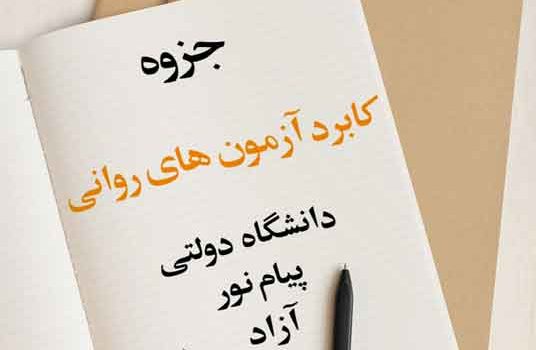 جزوه
کابرد آزمون های روانی
دانشگاه دولتی
پیام نور
آزاد